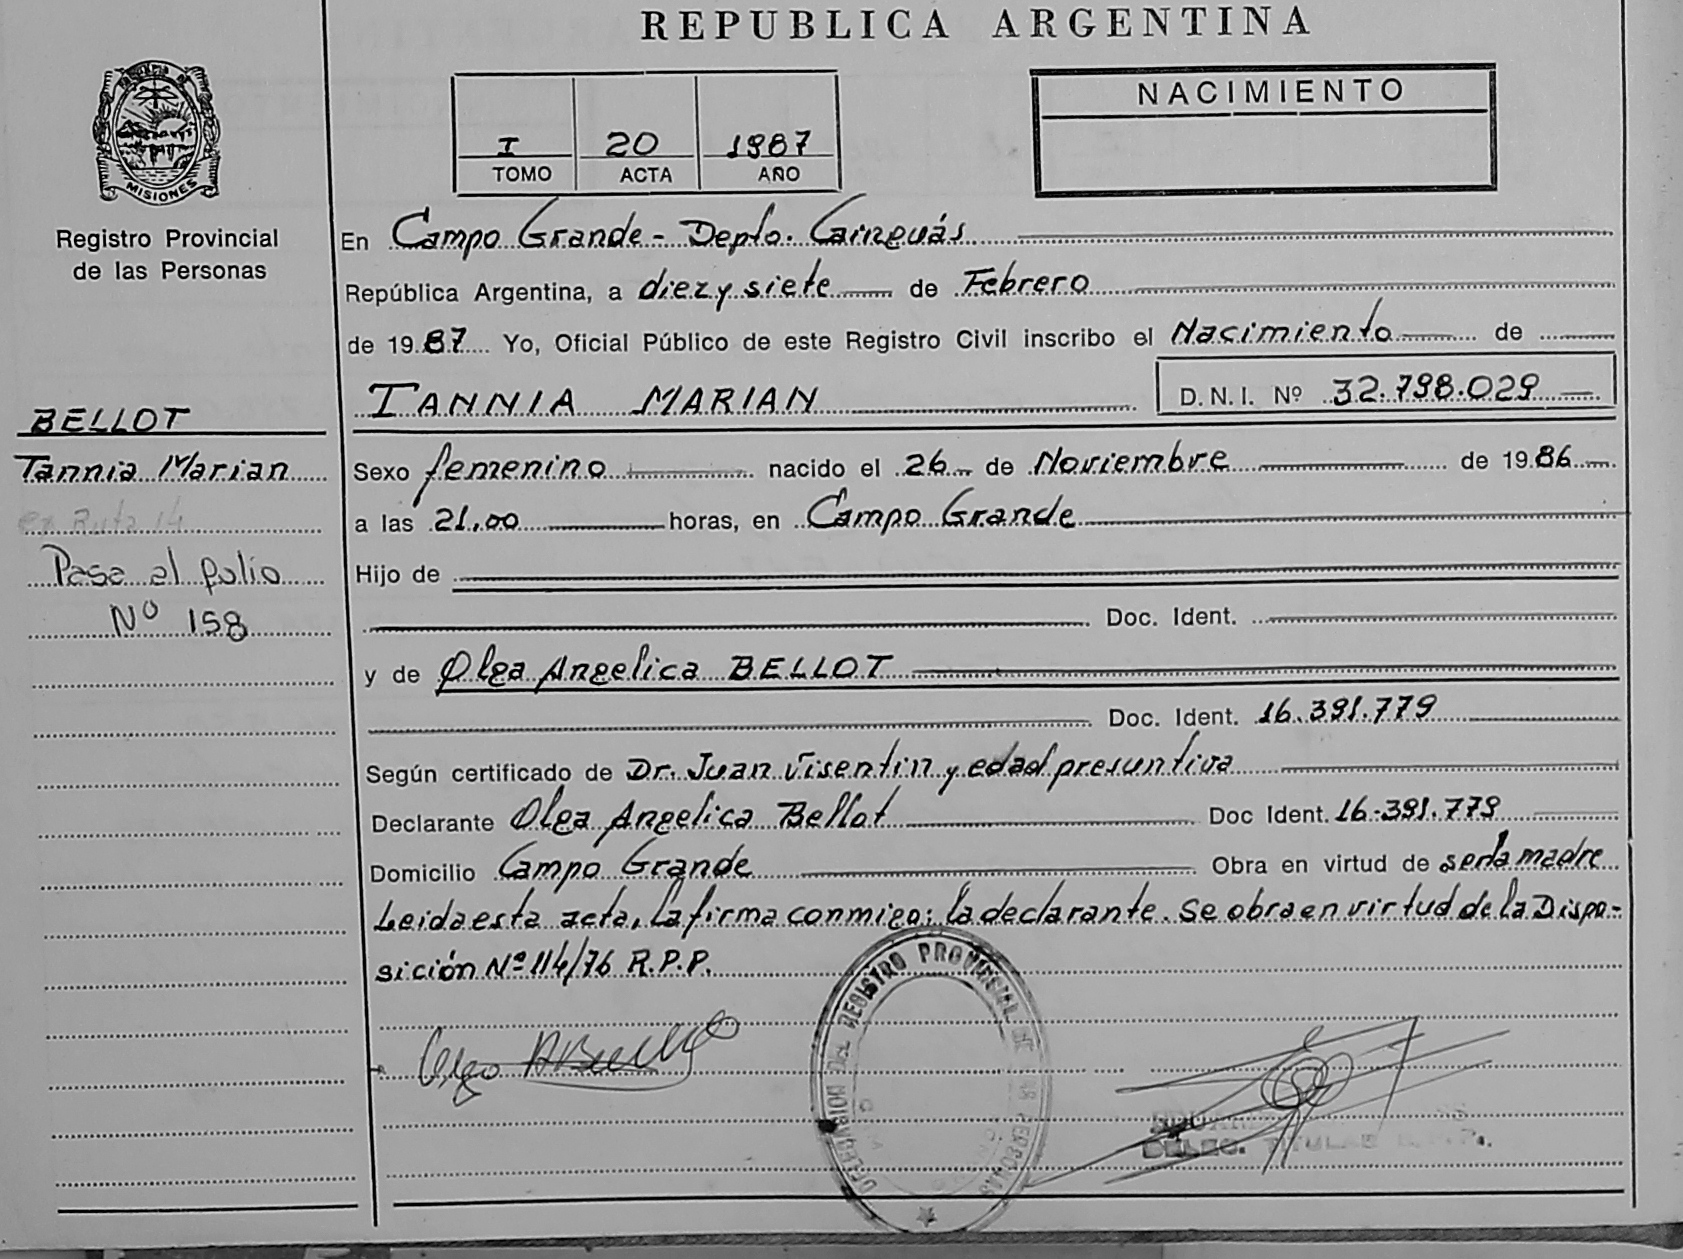 REPUBLICA ARGENTINA
MISIONES
Registro Provincial
de las Personas
I 20 1987
TOMO ACTA AÑO
NACIMIENTO
En Campo Grande - Depto. Cainguás
República Argentina, a diez y siete de Febrero
de 1987 Yo, Oficial Público de este Registro Civil inscribo el Nacimiento de
TANNIA MARIAN D.N.I. Nº 32.798.029
BELLOT
Tannia Marian
en Ruta 14
Pasa al folio
Nº 158
Sexo femenino nacido el 26 de Noviembre de 1986
a las 21,00 horas, en Campo Grande
Hijo de
Doc. Ident.
y de Olga Angelica BELLOT
Doc. Ident. 16.391.779
Según certificado de Dr. Juan Visentin y edad presuntiva
Declarante Olga Angelica Bellot Doc Ident. 16.391.779
Domicilio Campo Grande Obra en virtud de ser la madre
Leida esta acta, la firma conmigo: la declarante. Se obra en virtud de la Dispo-
sición Nº 114/76 R.P.P.
DELEGACION DEL REGISTRO PROVINCIAL DE LAS PERSONAS
DELEG. TITULAR R.P.P.